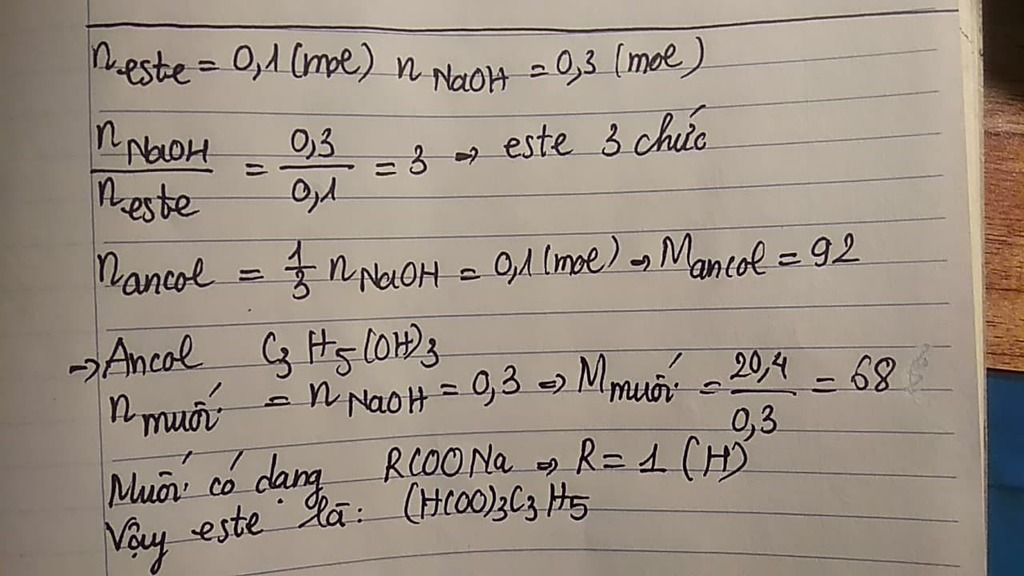 n este = 0,1 (mol) n NaOH = 0,3 (mol)
n NaOH / n este = 0,3 / 0,1 = 3 => este 3 chức
n ancol = 1/3 n NaOH = 0,1 (mol) → M ancol = 92
→ Ancol C3H5(OH)3
n muối = n NaOH = 0,3 => M muối = 20,4 / 0,3 = 68
Muối có dạng RCOONa => R = 1 (H)
Vậy este là: (HCOO)3C3H5